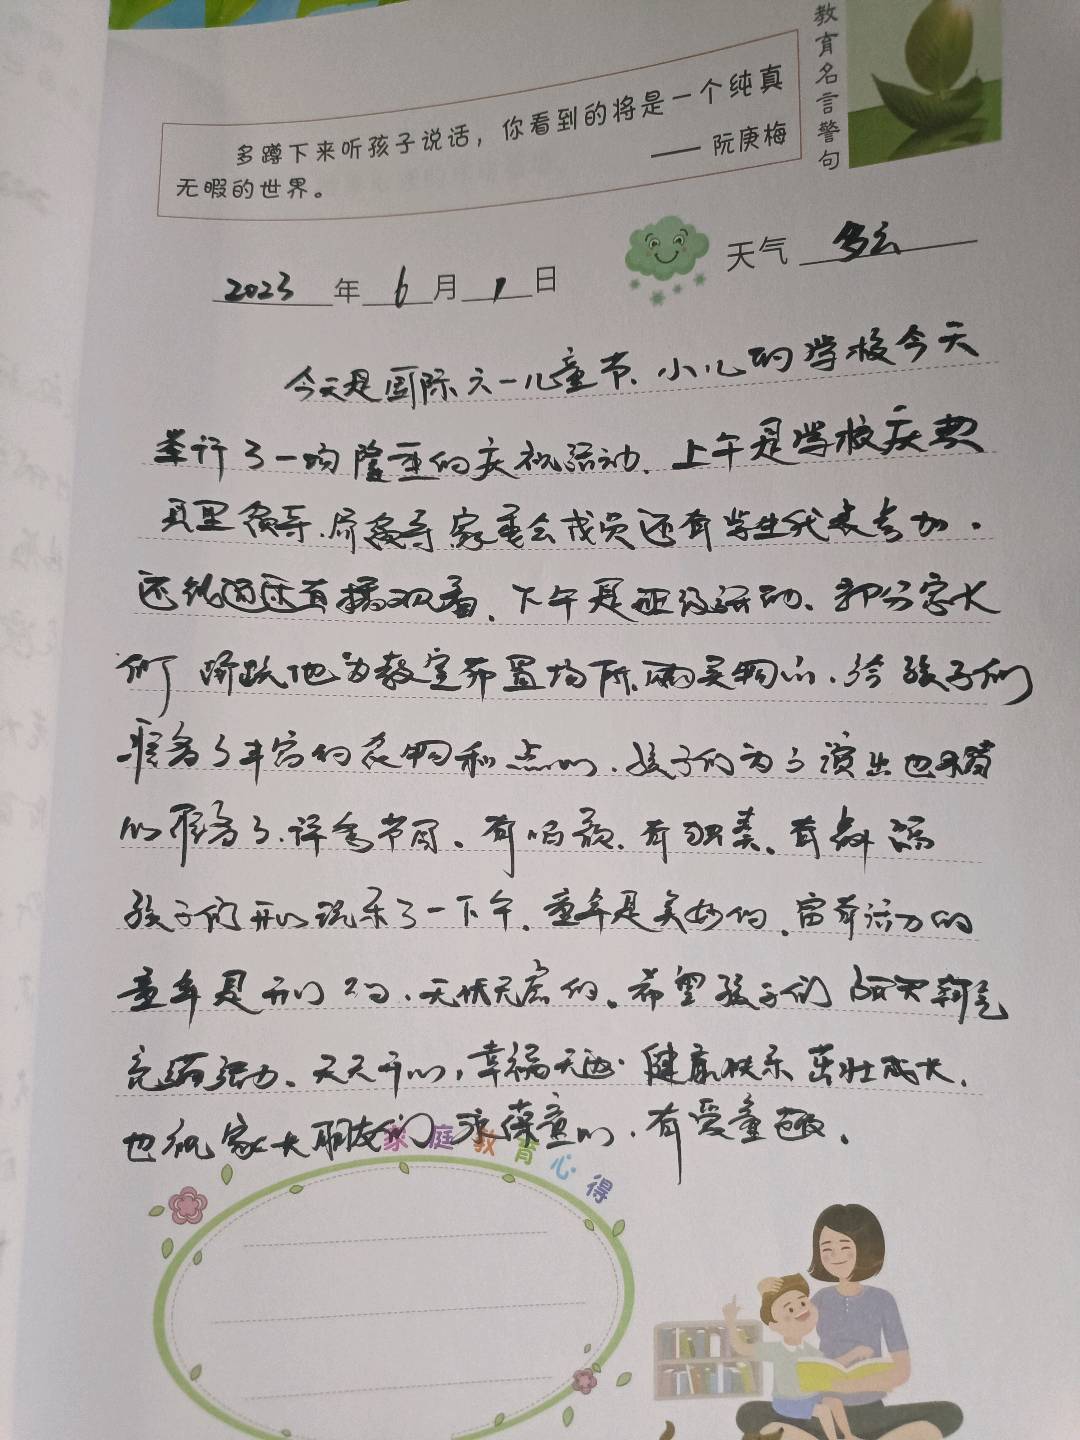 教育名言警句
多蹲下来听孩子说话，你看到的将是一个纯真
无暇的世界。
—— 阮庚梅
2023年6月1日
天气 多云
今天是国际六一儿童节、小儿的学校今天
举行了一场隆重的庆祝活动、上午是学校庆典
县里领导、局领导家委会成员还有学生代表参加.
还能通过直播观看、下午是班级活动、部分家长
们 为教室布置场所、购买物、给孩子们
准备了丰富的 物和点心、孩子们为了演出也精
心准备了许多节目、有唱歌、有 奏、有
孩子们开心玩乐了一下午、童年是美妙的、富有活力的
童年是 的、无忧无虑的、希望孩子们 朝气
充满活力、天天开心，幸福无边.健康快乐茁壮成长、
也祝家长朋友们永葆童心、有爱童趣、
家庭教育心得